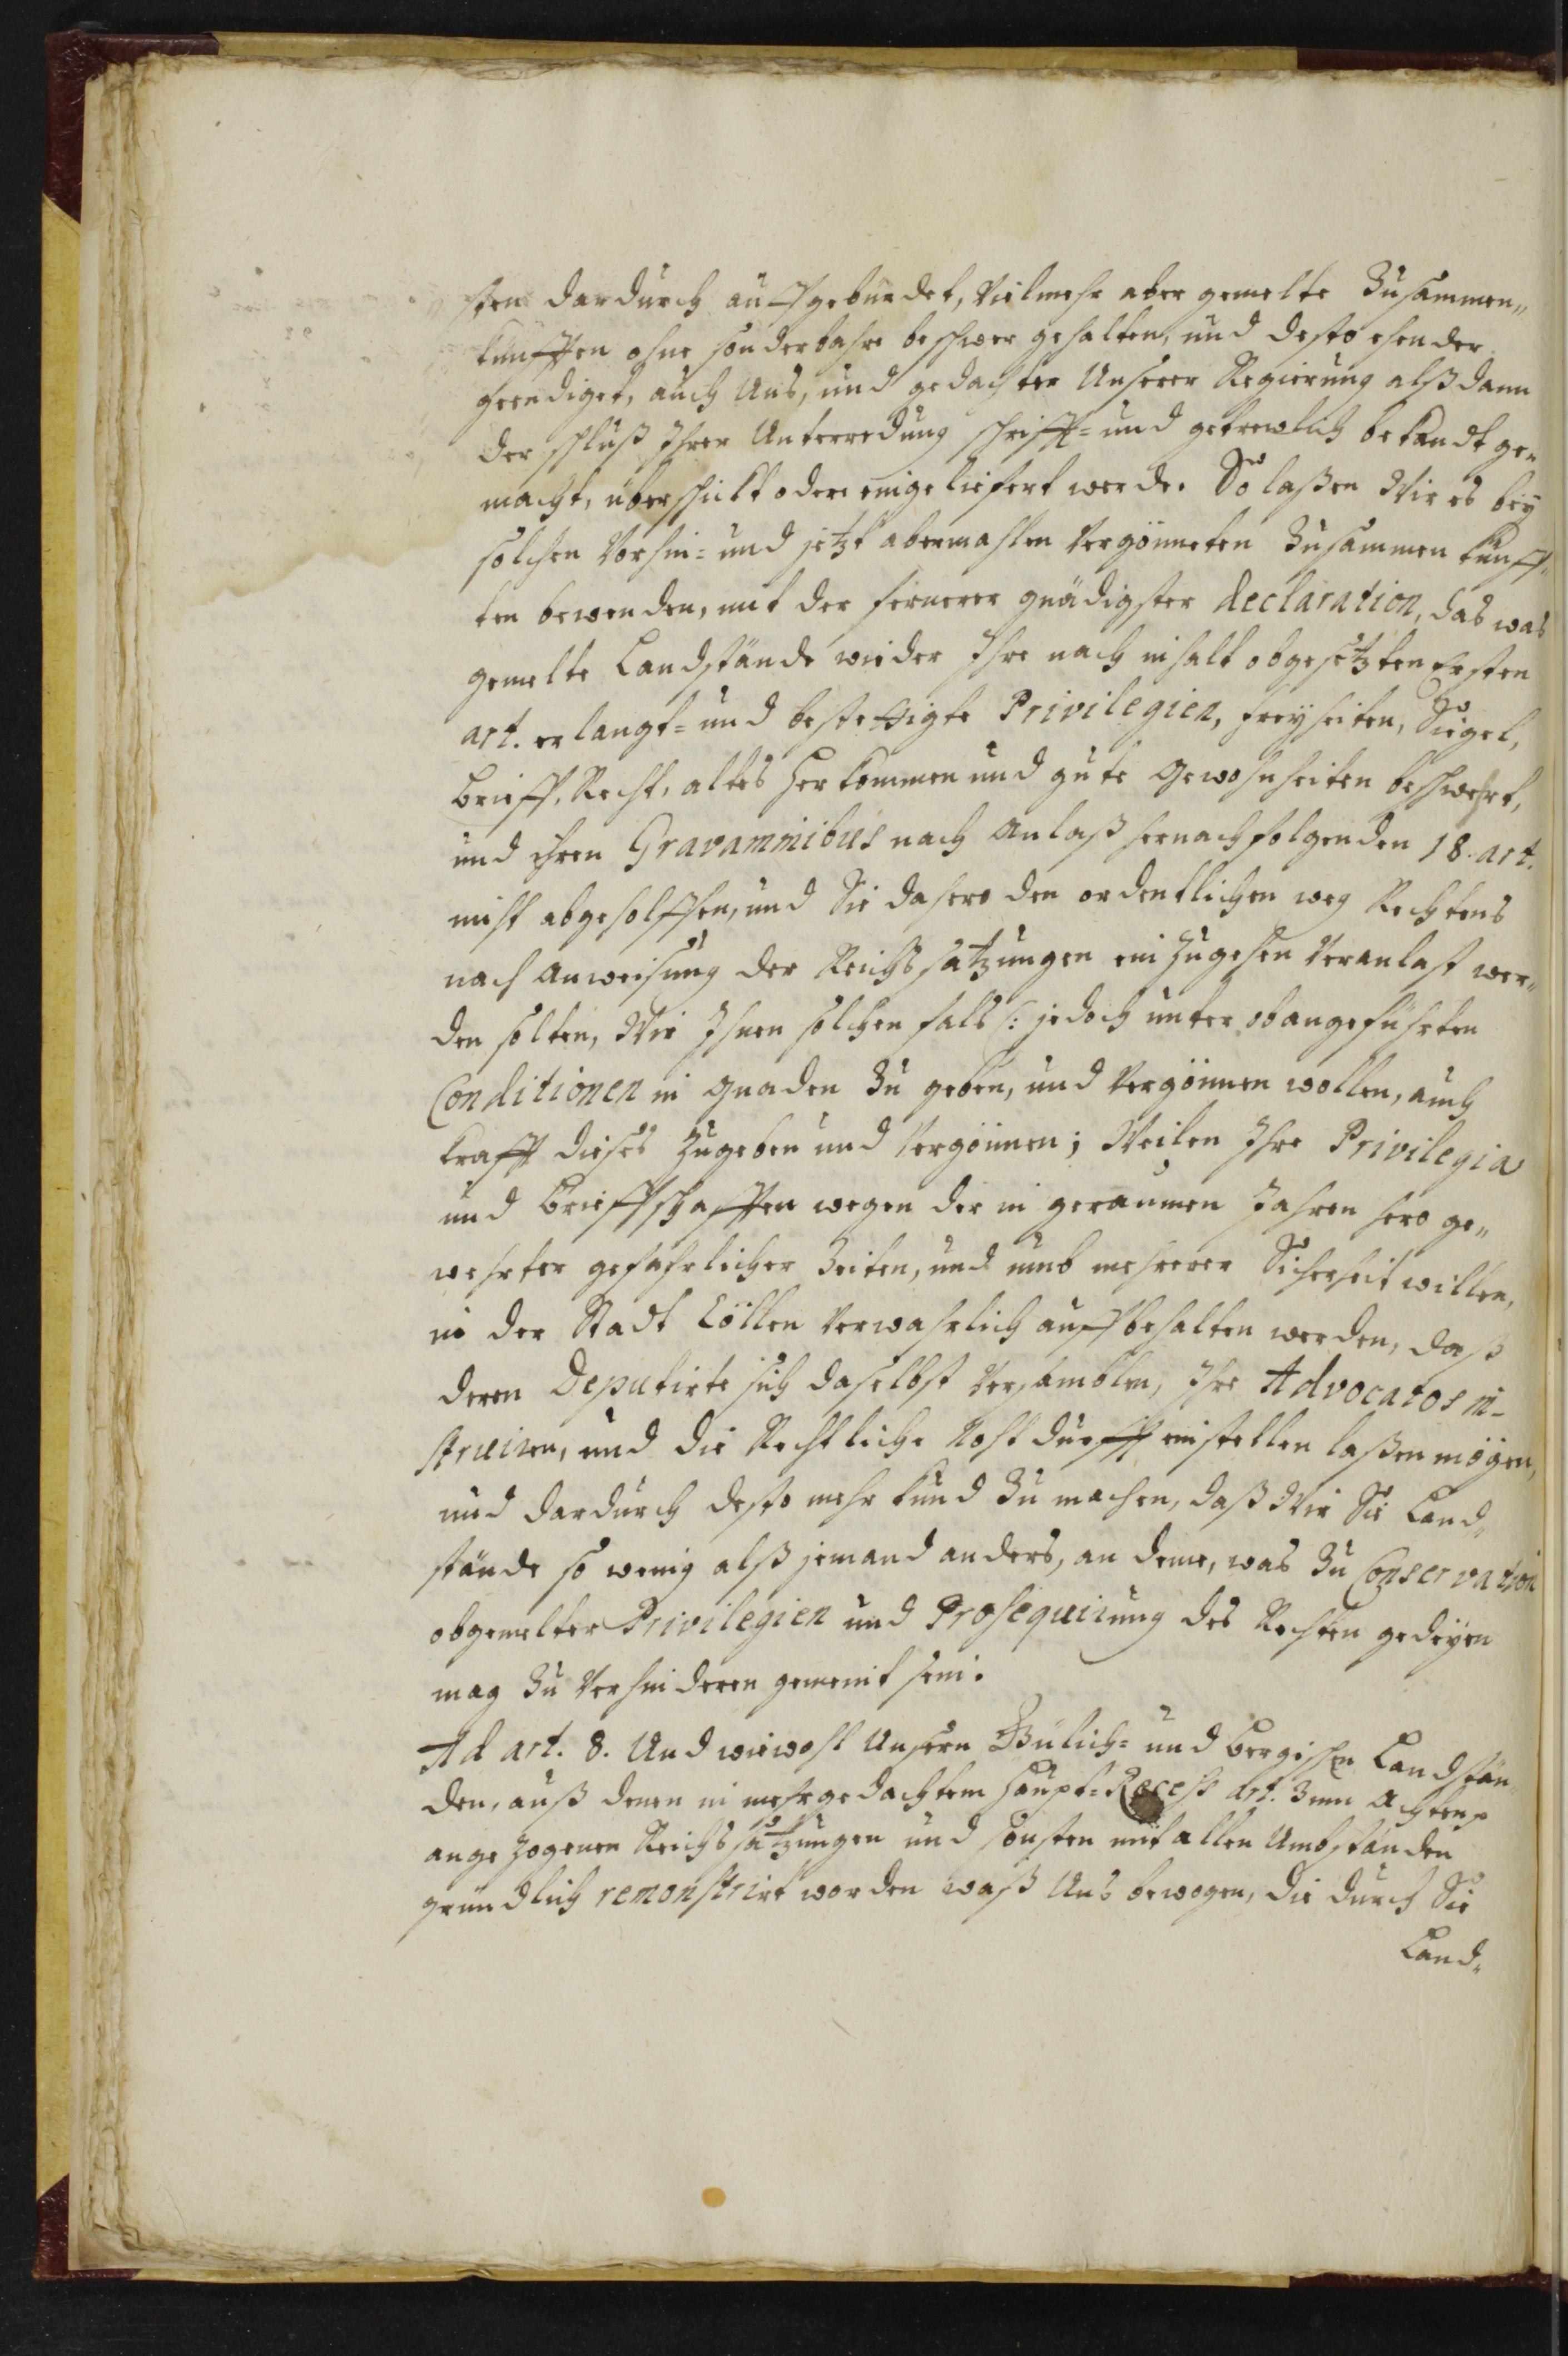 sten dardurch auffgebürdet, vielmehr aber gemelte Zusammen„
künfften ohne sonderbahre beschwer gehalten, und desto ehender
geendiget, auch Uns, und gedachter Unserer Regierung alßdann
der schluß Ihrer Unterredung schrifft= und getrewlich bekandt ge„
macht, uberschickt oder eingeliefert werde. So laßen Wir es bey
solchen Vorhin= und jetzt abermahlen Vergönneten Zusammen kunff„
ten bewenden, mit der fernerer gnädigster declaration, das was
gemelte Landstände wieder Ihre nach inhalt obgesetzten Ersten
art. erlangt= und bestettigte Privilegien, freyheiten, Siegel,
Brieff, Recht, altes herkommen und gute gewohnheiten beschwehrt,
und ihren Gravaminibus nach anlaß hernachfolgenden 18. art.
nicht abgeholffen, und Sie dahero den ordentlichen weg Rechtens
nach anweisung der Reichssatzungen einzugehen Veranlast wer„
den solten, Wir Ihnen solchen fals /: jedoch unter obangeführten
Conditionen in gnaden Zu geben, und Vergönnen wollen, auch
krafft dieses Zugeben und Vergönnen; Weilen Ihre Privilegia
und Brieffschafften wegen der in geraumen Jahren hero ge„
wehrter gefahrlicher Zeiten, und umb mehrerer Sicherheit willen,
in der Stadt Cöllen Verwahrlich auffbehalten werden, daß
deren Deputirte sich daselbst Versamblen, Ihre Advocatos in-
struiren, und die Rechtliche Nothdurfft einstellen laßen mögen,
und dardurch desto mehr kund Zu machen, daß Wir Sie Land„
stände so wenig alß jemand anders, an deme, was Zu Conservation
obgemelter Privilegien und Prosequirung des Rechten gedeyen
mag Zu Verhinderen gemeint sein.
Ad art. 8. Und wiewohl Unsern Gülich= und Bergischen Landstän„
den, auß denen in mehrgedachtem Haupt=Recess art. Zum Achten
angezogenen Reichssatzungen und sonsten mit allen Umbständen
gründlich remonstrirt worden waß Uns bewogen, die durch Sie
Land„